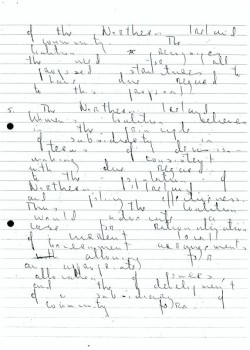 of the Northern Ireland
community. The
Coalition
the need for all
proposed structures to
have due regard
to this proposal
5. The Northern Ireland
Women's Coalition believes
in the principle
of subsidiarity in
terms of decision-
making consistent
with due regard
to the population of
Northern Ireland
and policy effectiveness.
Thus the Coalition
would advocate a
case for rationalization
of present local
Government arrangements
allowing for
an appropriate
allocation of powers,
and the development
of a subsidiary of
community fora.